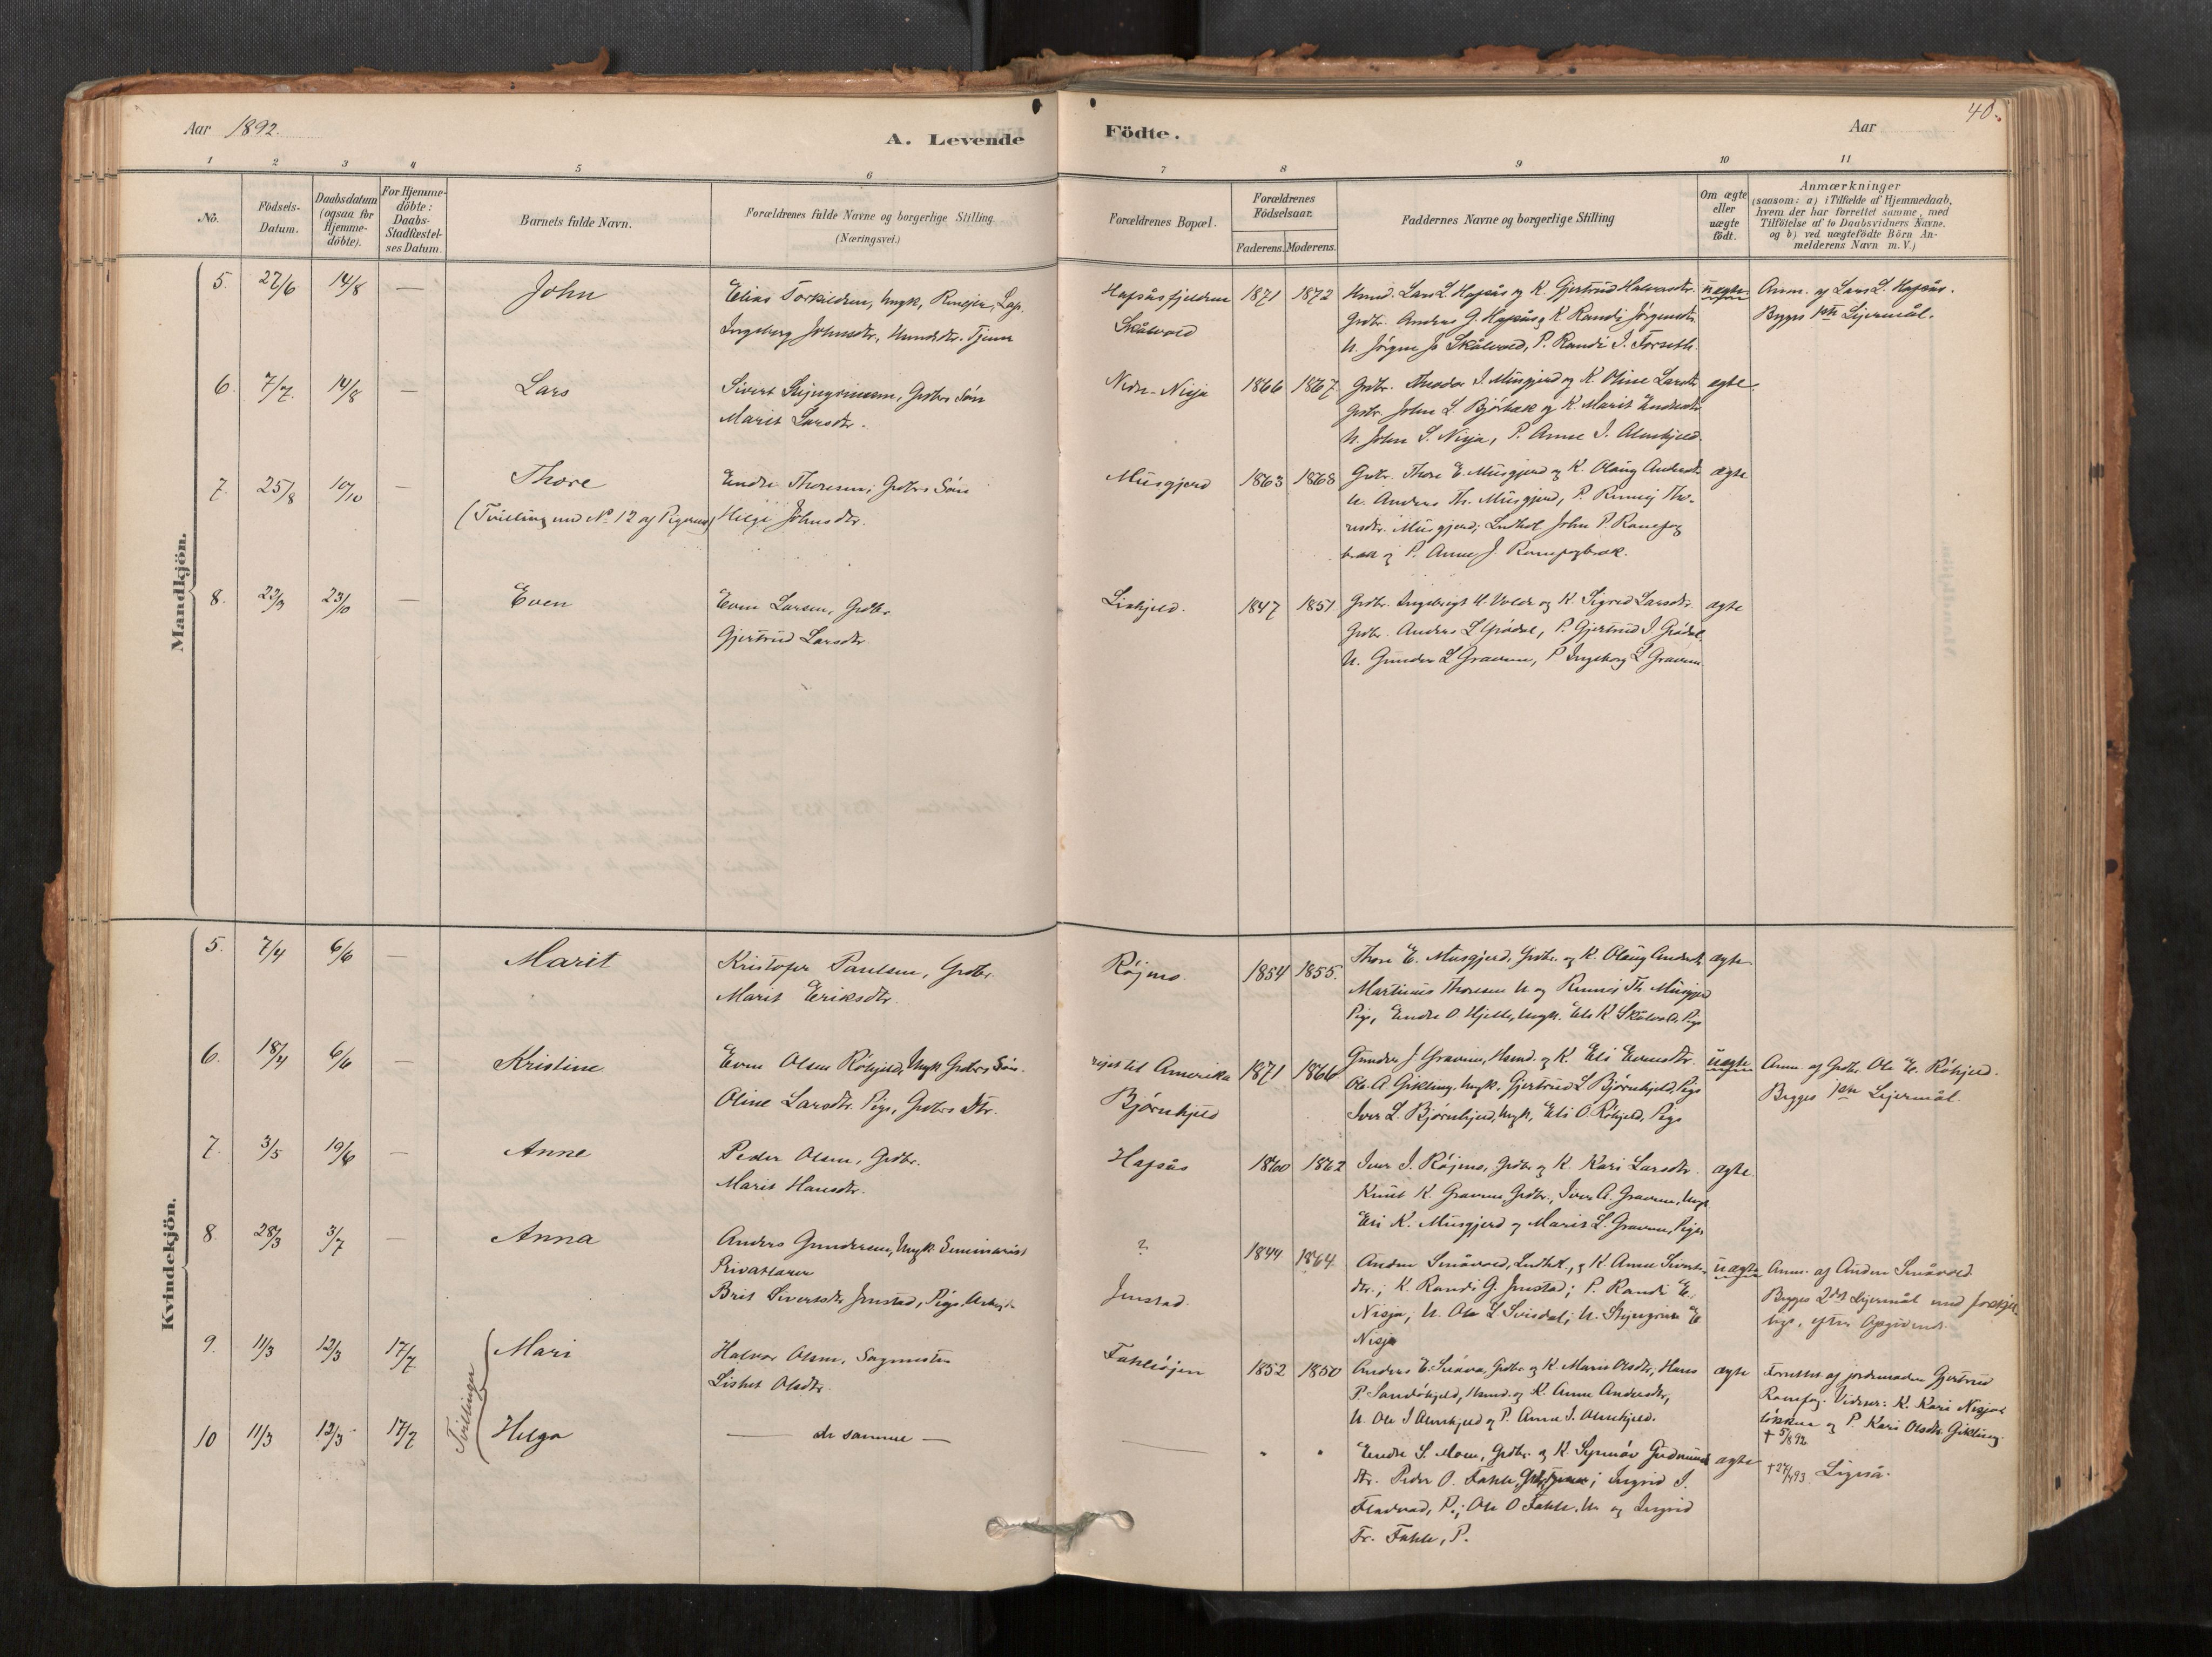 Aar 1892.
A. Levende
Födte.
Aar
40.
1 2 3 4 5 6 7 8 9 10 11
No.
Födsels-
Datum.
Daabsdatum
(ogsaa for
Hjemme-
döbte).
For Hjemme-
döbte:
Daabs-
Stadfæstel-
ses Datum.
Barnets fulde Navn.
Forældrenes fulde Navne og borgerlige Stilling.
(Næringsvei.)
Forældrenes Bopæl.
Forældrenes
Födselsaar.
Faderens. Moderens.
Faddernes Navne og borgerlige Stilling
Om ægte
eller
uægte
födt.
Anmærkninger
(saasom: a) i Tilfælde af Hjemmedaab,
hvem der har forrettet samme, med
Tilföielse af to Daabsvidners Navne.
og b) ved uægtefödte Börn An-
melderens Navn m. V.)
Mandkjön.
5. 27/6 14/8 — John
Elias Torkildsen, Ungk.
Ingeborg Johnsdtr.
Hafsåsfjeldene
Skålvold
1871 1872
Lars L. Hafsås og K. Gjertrud Halvorsdtr.
Grdbr. Anders G. Hafsås, K. Randi Jörgensdtr.
U. Jörgen J. Skålvold, P. Randi J. Forseth.
uægte
Anm. af Lars L. Hafsås.
Begges 1ste Lejermål.
6. 7/7. 14/8 — Lars
Sivert Stejngrimsen, Grdbrs Sön
Marit Larsdtr.
Nedre-Nisja
1866 1867
Grdbr. Theodor J. Musgjerd og K. Oline Larsdtr.
Grdbr. John L. Björbæk og K. Marit Endresdtr.
U. John S. Nisja, P. Anne J. Almskjeld.
ægte
7. 25/8 10/10 — Thore
(Tvilling med No. 12 af Pigerne)
Endre Thoresen, Grdbrs Sön
Helge Johnsdtr.
Musgjerd
1863 1868
Grdbr. Thore E. Musgjerd og K. Olaug Andersdtr.
U. Anders Th. Musgjerd, P. Runnej Tho-
resdtr. Musgjerd; John P.
og P. Anne J.
ægte
8. 22/9 23/10 — Even
Even Larsen, Grdbr.
Gjertrud Larsdtr.
Liahjeld.
1847 1851
Grdbr. Ingebrigt U. Volde og K. Sigrid Larsdtr.
Grdbr. Anders L. Grödal, P. Gjertrud J. Grödal.
U. Gunder L. Gravem, P. Ingeborg L. Gravem
ægte
Kvindekjön.
5. 7/4 6/6 — Marit
Kristofer Paulsen, Grdbr.
Marit Eriksdtr.
Röjmo.
1854 1855.
Thore E. Musgjerd, Grdbr. og K. Olaug Andersdtr.
Martinus Thoresen U. og Runnej Th. Musgjerd
Pige, Endre O. Hjelle, Ungk. Eli K. Skålvold, Pige
ægte
6. 18/4 6/6 — Kristine
Even Olsen Röhjeld, Ungk. Grdbrs Sön.
Oline Larsdtr. Pige, Grdbrs Dtr.
rejst til Amerika
Bjørnhjeld
1871 1866
Gunder J. Gravem, Hmd. og K. Eli Evensdtr.
Ole A. Gikling, Ungk., Gjertrud L. Bjørnhjeld, Pige
Iver L. Bjørnhjeld, Ungk., Eli O. Röhjeld, Pige
uægte
Anm. af Grdbr. Ole E. Röhjeld.
Begges 1ste Lejermål.
7. 3/5 19/6 — Anne
Peder Olsen, Grdbr.
Marit Hansdtr.
Hafsås
1860 1862
Iver J. Röjmo, Grdbr. og K. Kari Larsdtr.
Knut K. Gravem, Grdbr., Iver A. Gravem, Ungk.
Eli K. Musgjerd og Marit L. Gravem, Piger
ægte.
8 28/3 3/7 — Anna
Anders Gundersen, Ungk. Seminarist
Privatlærer
Brit Sivertsdtr. Jenstad, Pige
?
Jenstad.
1844 1864
Anders Småvold, og K. Anne Siverts-
dtr.; K. Randi G. Jenstad; P. Randi E.
Nisja, U. Ole L. Svisdal; U. Stejngrim E.
Nisja
uægte
Anm. af Anders Småvold.
Begges 2det Lejermål med forskjel-
lige, efter Opgivende.
9. 11/3 12/3 17/7 Mari
Tvillinger
Halvor Olsen,
Lisbet Olsdtr.
Fahlesjen
1852 1850
Anders E. Snöva, Grdbr. og K. Marit Olsdtr., Hans
P. Sandöhjeld, Hmd. og K. Anne Andersdtr.,
U. Ole J. Almskjeld og P. Anne J. Almskjeld.
ægte
Forrettet af jordemoder Gjertrud
Vidner: K. Kari
og P. Kari Olsdtr. Gikling.
† 5/8 92
10 11/3 12/3 17/7 Helga
— de samme —
" "
Endre S. Moen, Grdbr. og K. Synnöv Gudmunds-
dtr. Peder O. Fahle; Ingrid J.
Flatvad, P.; Ole O. Fahle, U. og Ingrid
Tr. Fahle, P.
ægte
† 27/4 93